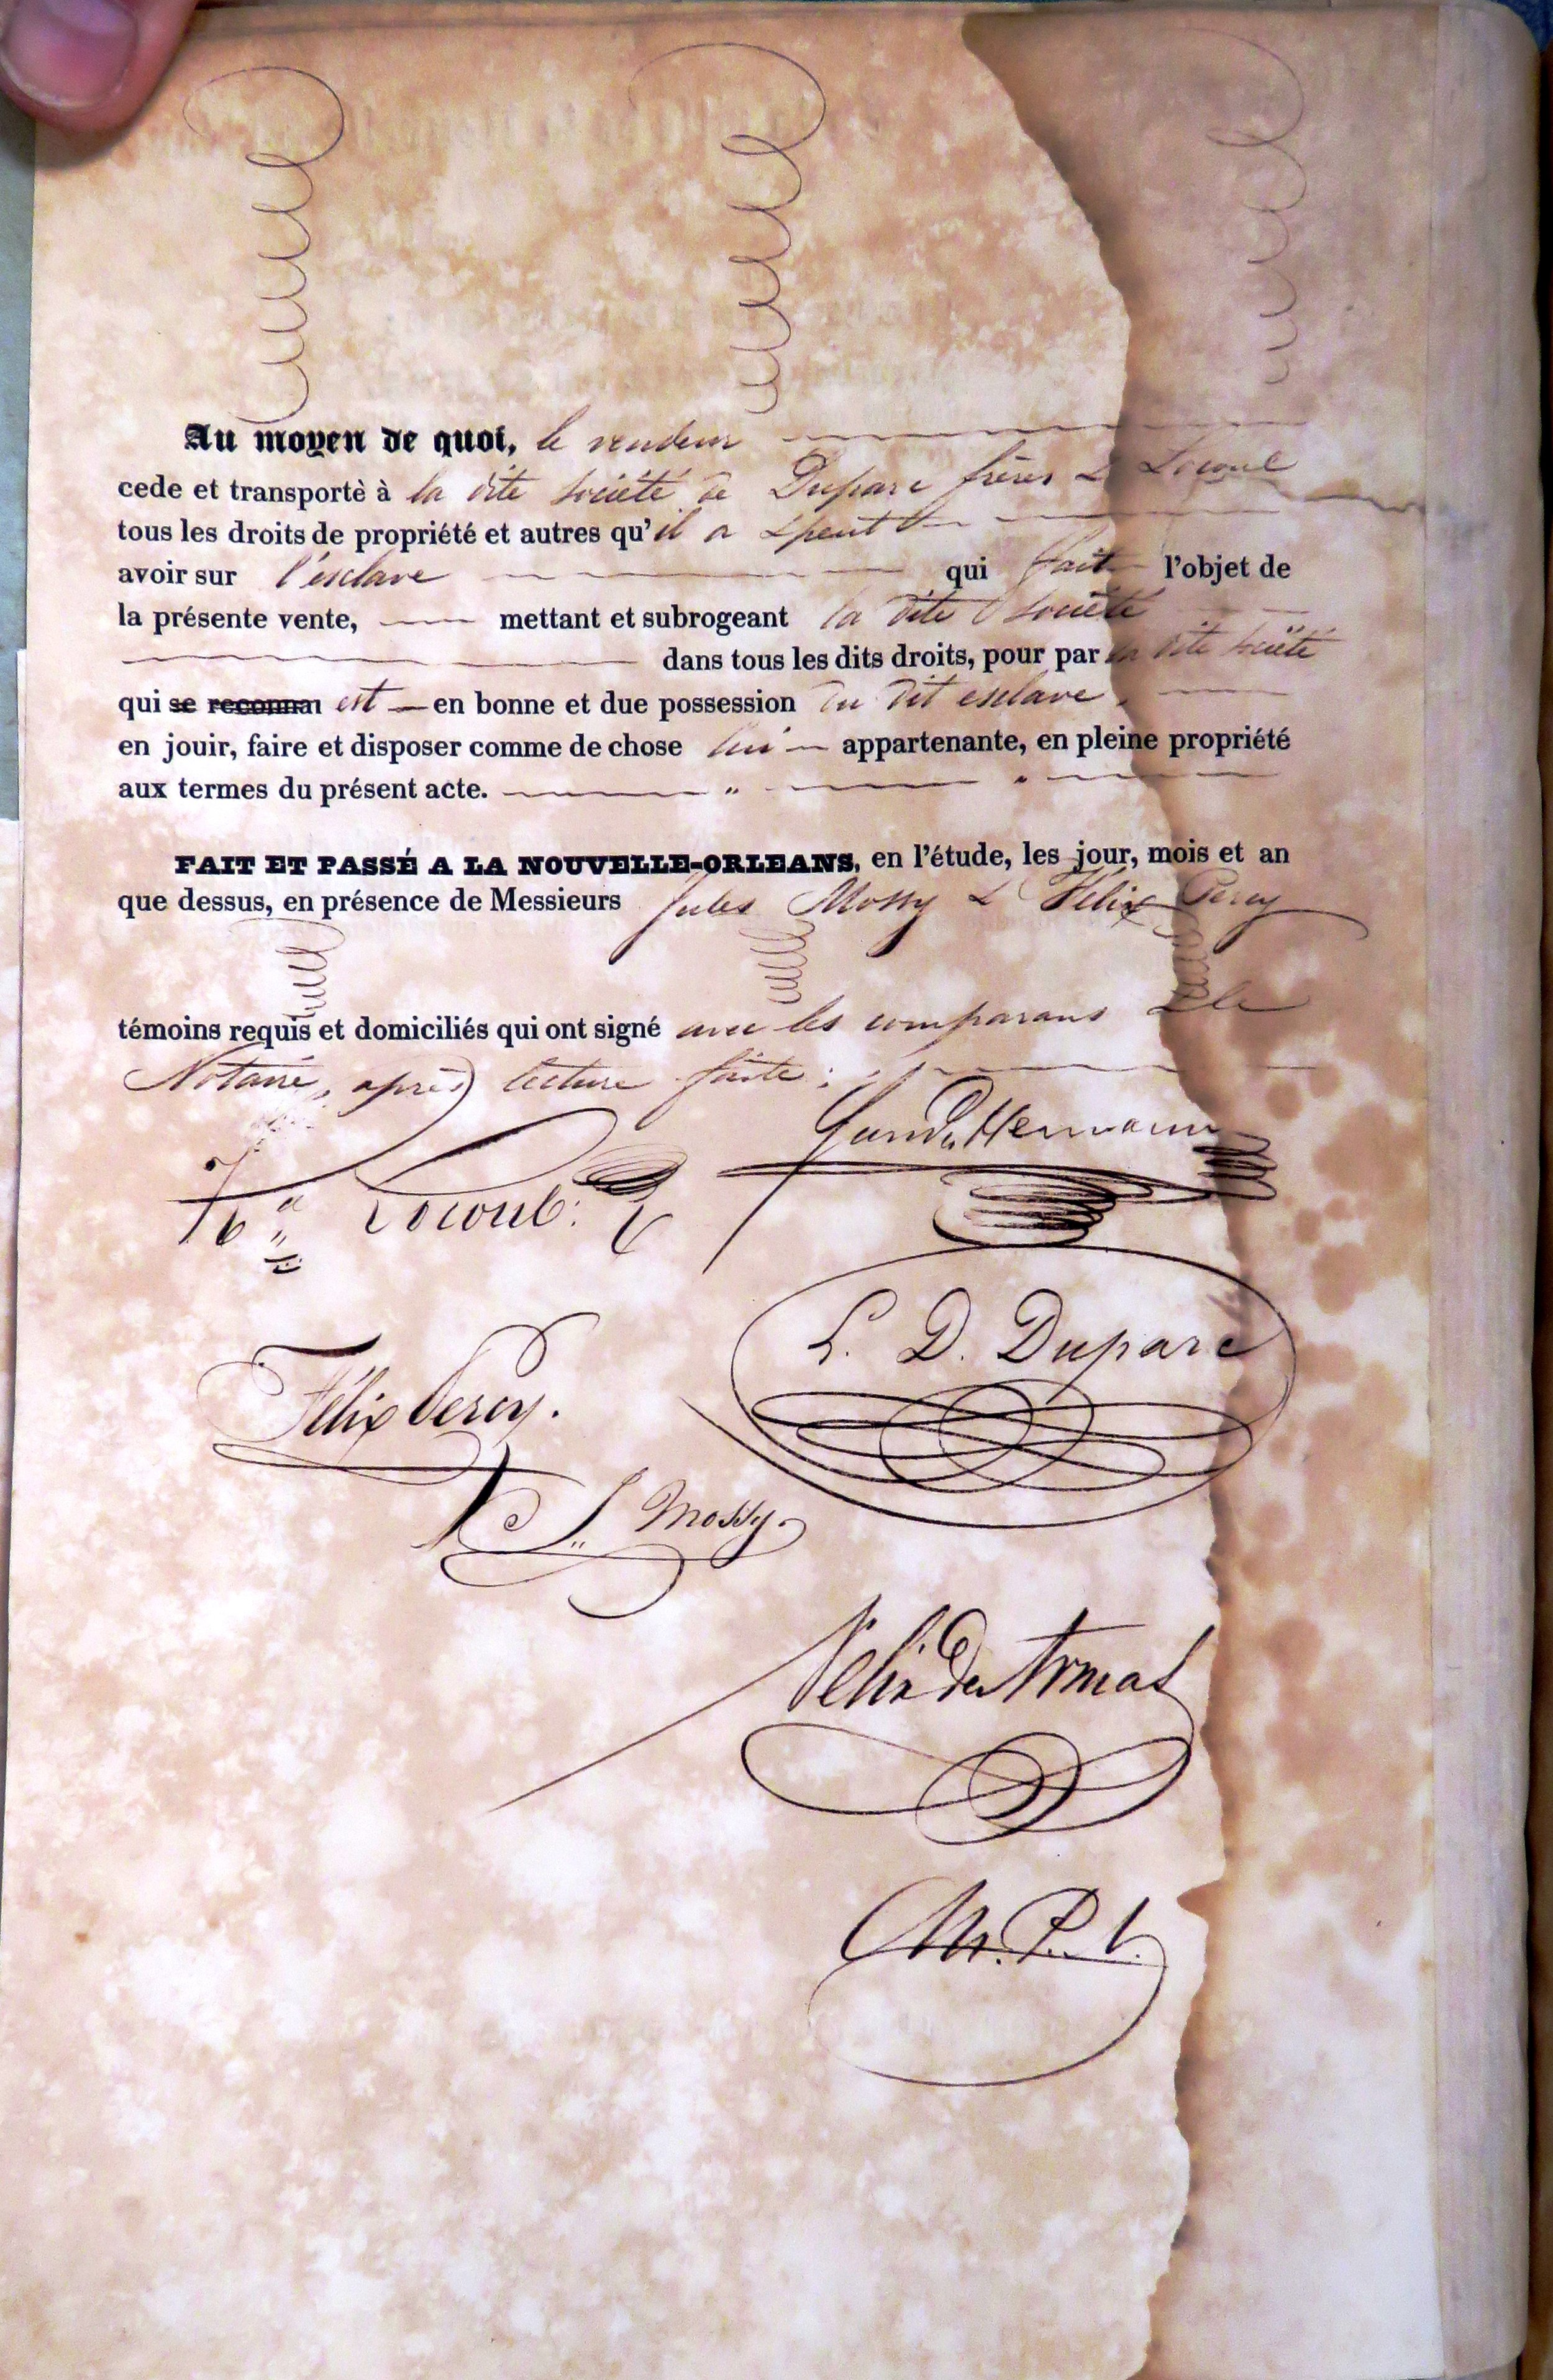 Au moyen de quoi, le vendeur
cede et transportè à la dite société de Duparc frères & Locoul
tous les droits de propriété et autres qu'il a & peut
avoir sur l'esclave qui fait l'objet de
la présente vente, mettant et subrogeant la dite société
dans tous les dits droits, pour par la dite société
qui se reconnai est en bonne et due possession du dit esclave,
en jouir, faire et disposer comme de chose lui appartenante, en pleine propriété
aux termes du présent acte.
FAIT ET PASSÉ A LA NOUVELLE-ORLEANS, en l'étude, les jour, mois et an
que dessus, en présence de Messieurs Jules Mossy & Félix Percy
témoins requis et domiciliés qui ont signé avec les comparans & le
Notaire, après lecture faite:
Hermann
Locoul
L. D. Duparc
Félix Percy.
J. Mossy.
Felix de Armas
Not. Pub.